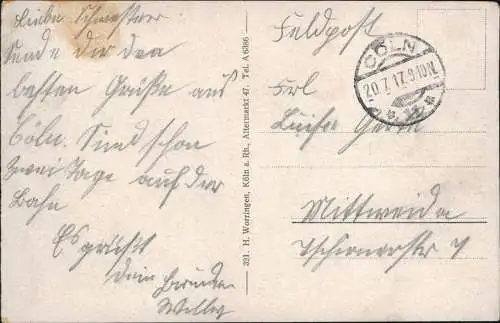 Liebe Schwester
Sende dir den
besten Grüße aus
Cöln. Sind schon
zwei Tage auf der
Bahn
Es
grüsst
dein Bruder
Willy
321. H. Worringen, Köln a. Rh., Altermarkt 47. Tel. A 6386
Feldpost
CÖLN
20.7.17.9-10N.
Frl
Luise
Mittweida